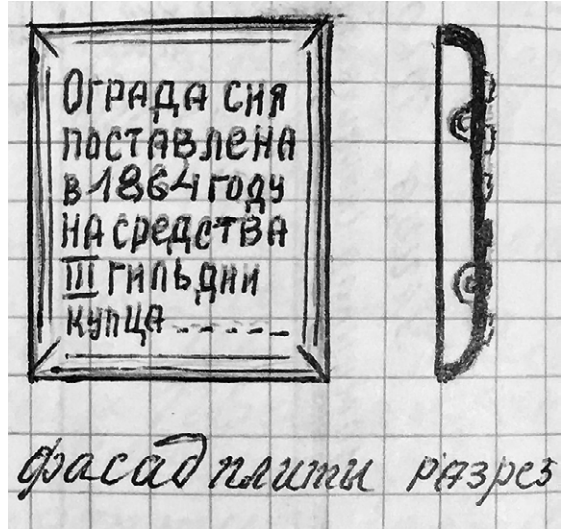 Ограда сия
поставлена
в 1864 году
на средства
III гильдии
купца -----
фасад плиты разрез